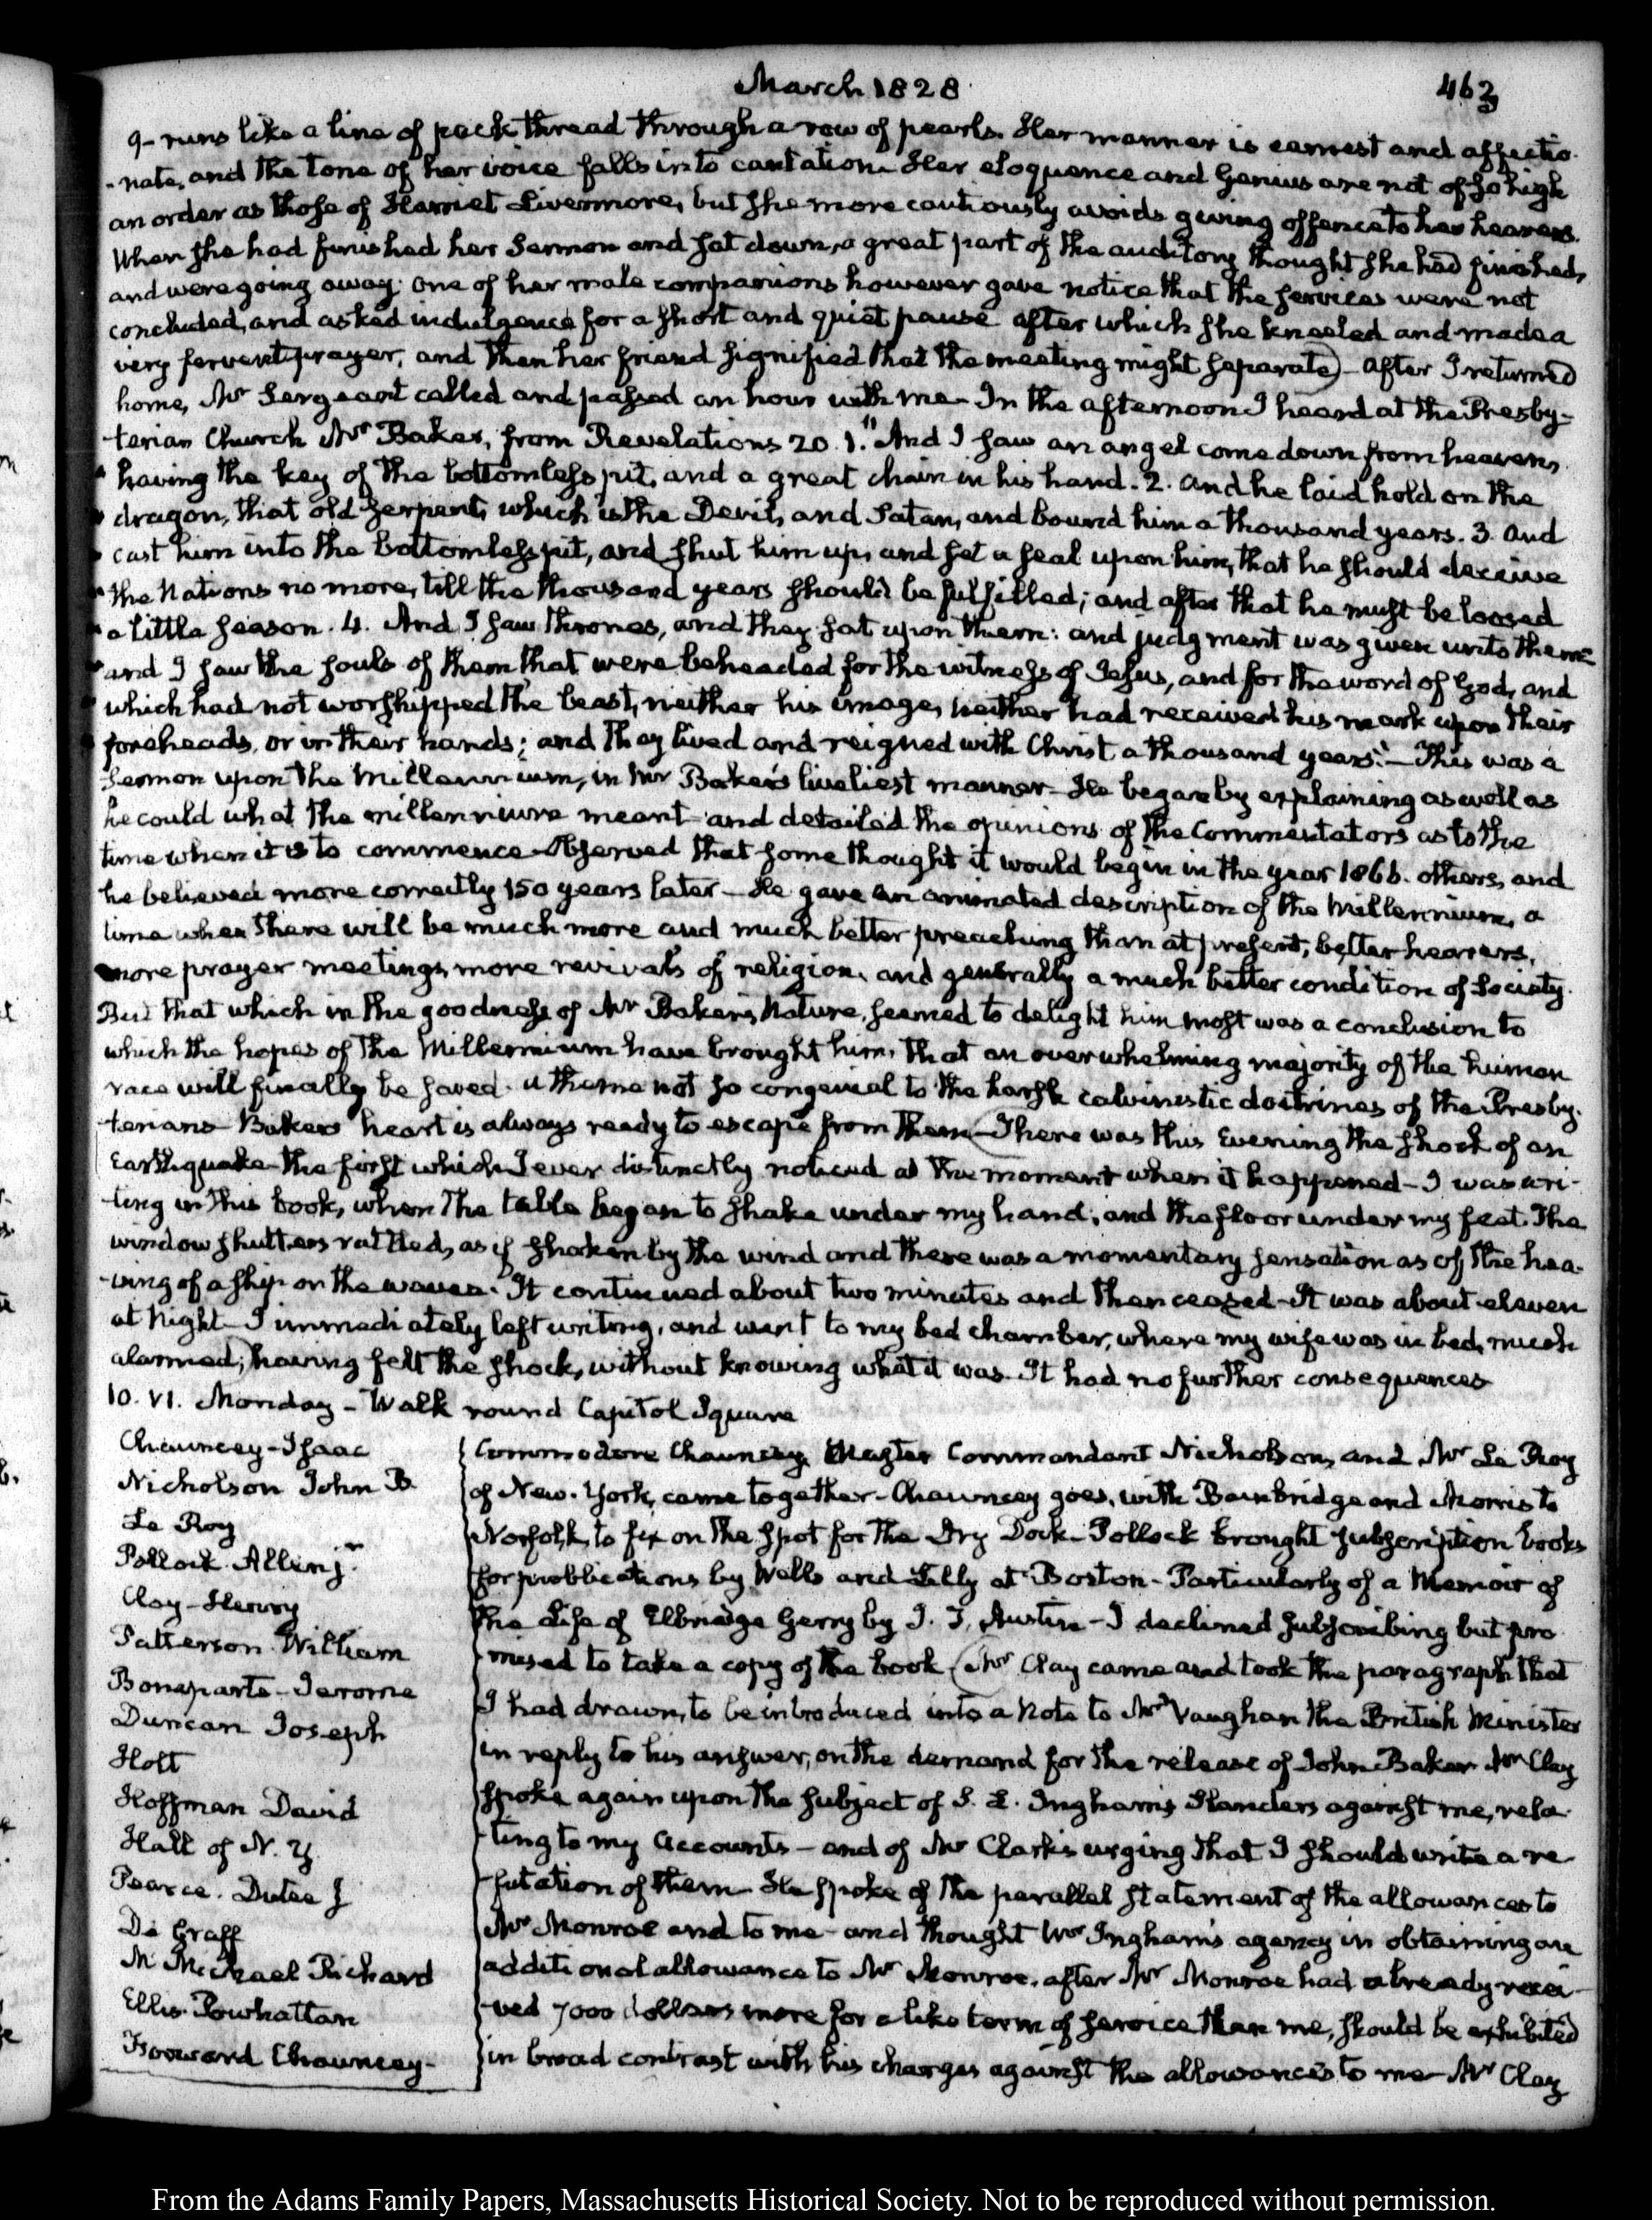 March 1828.
463
9- runs like a line of pack thread through a row of pearls. Her manner is earnest and affectio-
-nate, and the tone of her voice falls into cantation. Her eloquence and Genius are not of so high
an order as those of Harriet Livermore, but she more cautiously avoids giving offence to her hearers.
When she had finished her Sermon and sat down, a great part of the auditory thought she had finished,
and were going away. One of her male companions however gave notice that the services were not
concluded, and asked indulgence for a short and quiet pause after which she kneeled and made a
very fervent prayer, and then her friend signified that the meeting might separate) - After I returned
home, Mr Sergeant called and passed an hour with me - In the afternoon I heard at the Presby-
-terian Church Mr Baker, from Revelations 20. 1. "And I saw an angel come down from heaven,
" having the key of the bottomless pit, and a great chain in his hand. 2. And he laid hold on the
" dragon, that old Serpent, which is the Devil, and Satan, and bound him a thousand years. 3. And
" cast him into the bottomless pit, and shut him up, and set a seal upon him, that he should deceive
" the Nations no more, till the thousand years should be fulfilled; and after that he must be loosed
" a little season. 4. And I saw thrones, and they sat upon them: and judgment was given unto them:
" and I saw the souls of them that were beheaded for the witness of Jesus, and for the word of God, and
" which had not worshipped the beast, neither his image, neither had received his mark upon their
" foreheads, or in their hands; and they lived and reigned with Christ a thousand years." - This was a
Sermon upon the Millennium, in Mr Baker's liveliest manner - He began by explaining as well as
he could what the millennium meant - and detailed the opinions of the Commentators as to the
time when it is to commence - Observed that some thought it would begin in the year 1866. others, and
he believed more correctly 150 years later - He gave an animated description of the Millennium, a
time when there will be much more and much better preaching than at present, better hearers,
more prayer meetings, more revivals of religion, and generally a much better condition of Society.
But that which in the goodness of Mr Baker's Nature, seemed to delight him most was a conclusion to
which the hopes of the Millennium have brought him, that an overwhelming majority of the human
race will finally be saved. A theme not so congenial to the harsh calvinistic doctrines of the Presby-
-terians - Baker's heart is always ready to escape from them - (There was this Evening the shock of an
Earthquake - the first which I ever distinctly noticed at the moment when it happened - I was wri-
-ting in this book, when the table began to shake under my hand, and the floor under my feet. The
window shutters rattled, as if shaken by the wind and there was a momentary sensation as of the hea-
-ving of a ship on the waves. It continued about two minutes and then ceased - It was about eleven
at Night - I immediately left writing, and went to my bed chamber, where my wife was in bed, much
alarmed; having felt the shock, without knowing what it was. It had no further consequences
10. VI. Monday - Walk round Capitol Square
Chauncey - Isaac
Nicholson John B.
Le Roy
Pollock. Allen jr.
Clay - Henry
Patterson. William
Bonaparte - Jerome
Duncan Joseph
Holt
Hoffman David
Hall of N. Y.
Pearce. Dutee J
De Graff
Mc Michael Richard
Ellis. Powhattan
Forward Chauncey -
Commodore Chauncey, Master Commandant Nicholson, and Mr Le Roy
of New-York, came together - Chauncey goes, with Bainbridge and Morris to
Norfolk, to fix on the spot for the Dry Dock - Pollock brought subscription books
for publications by Wells and Lilly at Boston - Particularly of a Memoir of
the Life of Elbridge Gerry by J. T. Austin - I declined subscribing but pro-
-mised to take a copy of the book. (Mr Clay came and took the paragraph that
I had drawn, to be introduced into a Note to Mr Vaughan the British Minister
in reply to his answer, on the demand for the release of John Baker. Mr Clay
spoke again upon the subject of S. D. Ingham's slanders against me, rela-
-ting to my Accounts - and of Mr Clark's urging that I should write a re-
-futation of them - He spoke of the parallel statement of the allowances to
Mr Monroe and to me - and thought Mr Ingham's agency in obtaining an
additional allowance to Mr Monroe, after Mr Monroe had already recei-
-ved 7000 dollars more for a like term of service than me, should be exhibited
in broad contrast with his charges against the allowances to me - Mr Clay
From the Adams Family Papers, Massachusetts Historical Society. Not to be reproduced without permission.